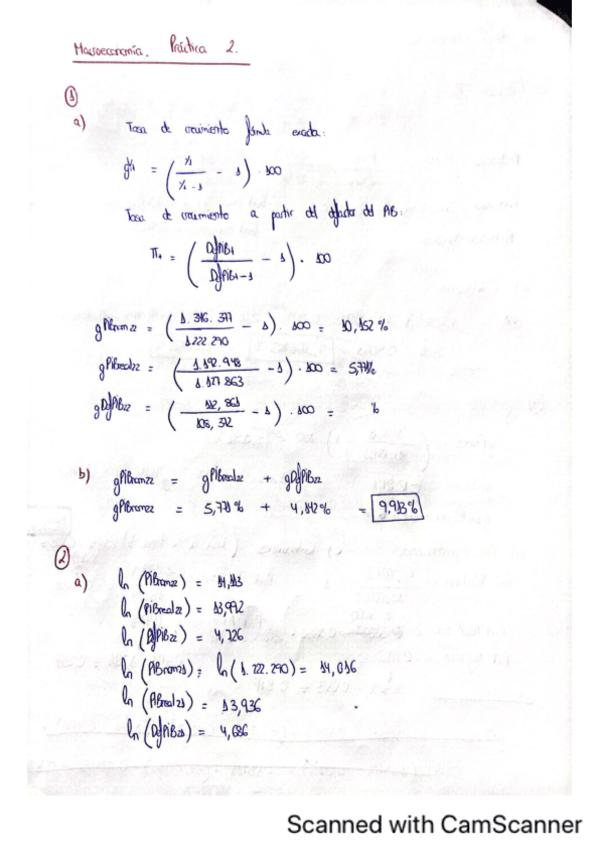 Macroeconomía. Práctica 2.
①
a) Tasa de crecimiento fórmula exacta:
gYt = (Yt / Yt-1 - 1) · 100
Tasa de crecimiento a partir del deflactor del PIB:
πt = (DefPIBt / DefPIBt-1 - 1) · 100
gPIBnom22 = (1.346.377 / 1.222.290 - 1) · 100 = 10,152 %
gPIBreal22 = (1.192.948 / 1.127.863 - 1) · 100 = 5,771%
gDefPIB22 = (112,861 / 108,372 - 1) · 100 = %
b) gPIBnom22 = gPIBreal22 + gDefPIB22
gPIBnom22 = 5,771% + 4,142% = 9,913%
②
a) ln (PIBnom22) = 14,113
ln (PIBreal22) = 13,992
ln (DefPIB22) = 4,726
ln (PIBnom21) = ln (1.222.290) = 14,016
ln (PIBreal21) = 13,936
ln (DefPIB21) = 4,686
Scanned with CamScanner